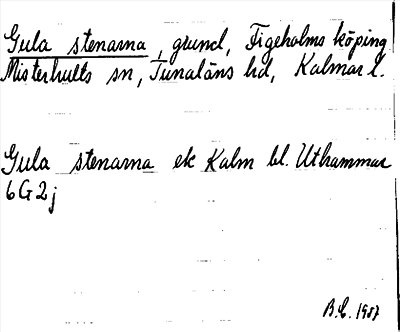 Gula stenarna, grund, Figeholms köping
Misterhults sn, Tunaläns hd, Kalmar l.
Gula stenarna ek Kalm bl. Uthammar
6G2j
B.E. 1957